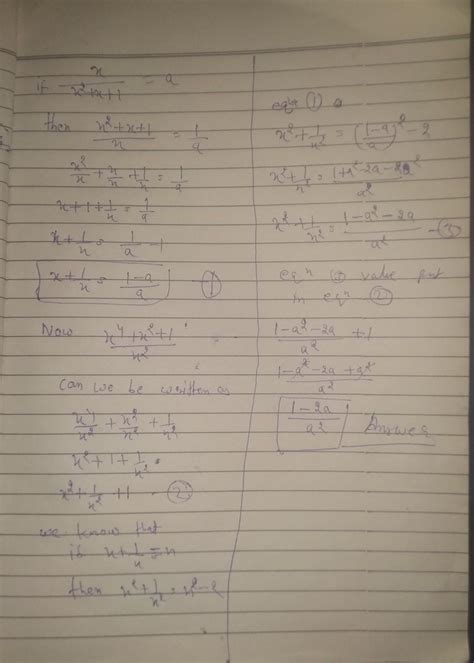 if x/(x²+x+1) = a
then (x²+x+1)/x = 1/a
x²/x + x/x + 1/x = 1/a
x+1+1/x = 1/a
x+1/x = 1/a - 1
x+1/x = (1-a)/a - ①
Now (x⁴+x²+1)/x² =
can we be written as
x⁴/x² + x²/x² + 1/x²
x²+1+1/x²
x²+1/x²+1 - ②
we know that
if x+1/x = n
then x²+1/x² = n²-2
eqⁿ ①
x²+1/x² = ((1-a)/a)² - 2
x²+1/x² = (1+a²-2a-2a²)/a²
x²+1/x² = (1-a²-2a)/a² - ③
eqⁿ ③ value put
in eqⁿ ②
(1-a²-2a)/a² + 1
(1-a²-2a+a²)/a²
(1-2a)/a² Answer